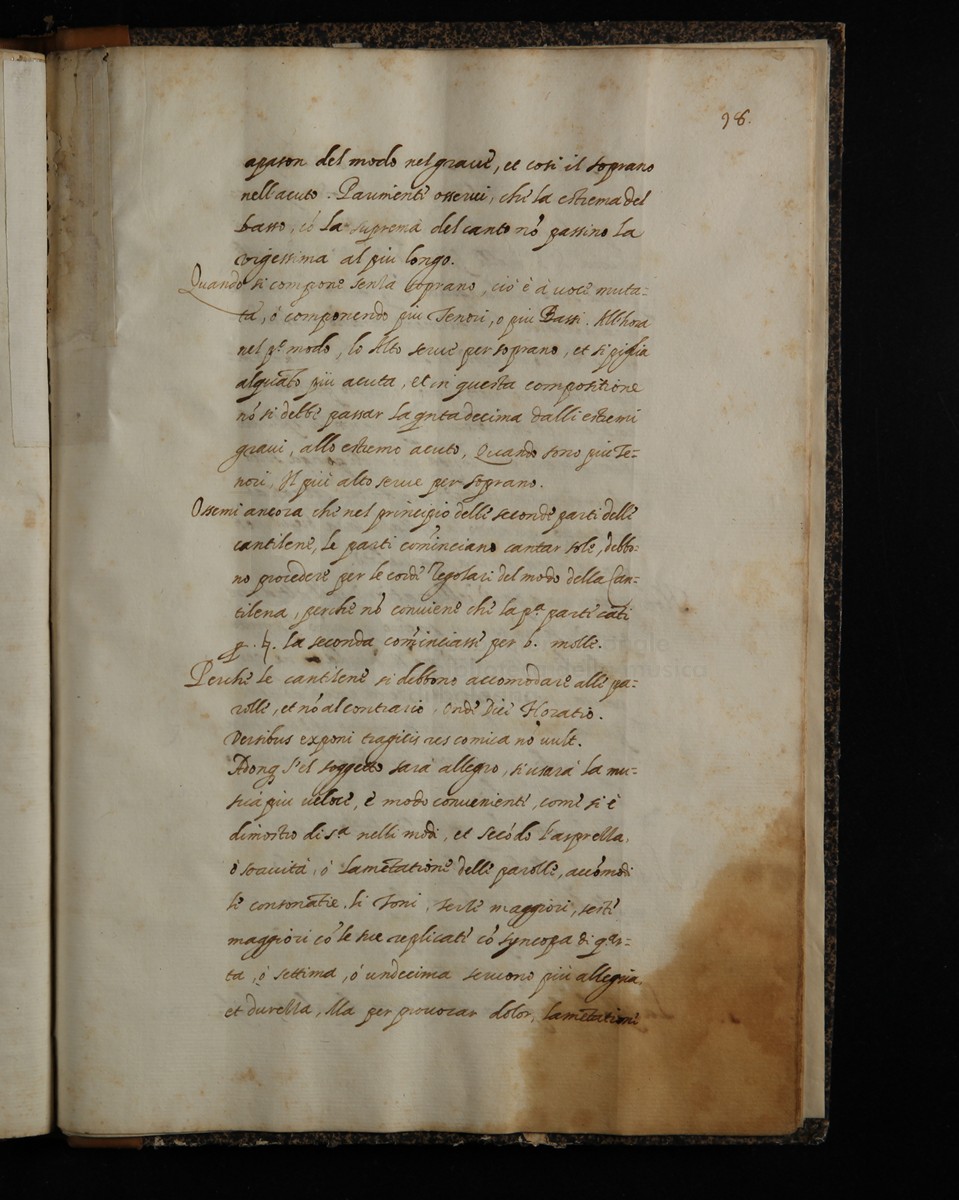 98.
apason del modo nel grave, et cosi il soprano
nell'acuto. Parimenti osservi, che la estrema del
basso, cō la suprema del canto nō passino la
vigessima al piu longo.
Quando si compone senza soprano, ciò è à voce muta=
ta, ò componendo piu Tenori, o piu Bassi. All'hora
nel p.º modo, lo Alto serve per soprano, et si piglia
alquāto piu acuta, et in questa compositione
nō si debbe passar la qnta decima dalli estremi
gravi, allo estremo acuto, Quando sono piu Te=
nori, Il più alto serve per soprano.
Osservi ancora che nel principio delle seconde parti delle
cantilene, le parti cominciano cantar sole, debbo=
no procedere per le corde Regolari del modo della Can=
tilena, perche nō conviene che la p.ª parte cāti
p. ♮. la seconda cominciasse per b. molle.
Perche le cantilene si debbono accomodare alle pa=
rolle, et nō al contrario, onde Dice Horatio.
Versibus exponi tragitis res comica nō vult.
Adonq S'el soggetto sarà allegro, si usarà la mu=
sica piu veloce, è modo conveniente, come si è
dimostro di s.ª nelli modi, et secōdo l'asprezza,
ò soavità, ò lamētatione delle parolle, accōmodi
le consonātie, li Toni, terze maggiori, seste
maggiori cō le sue replicate cō syncopa di quar=
ta, ò settima, ò undecima servono più allegria,
et durezza, Ma per provocar dolor, lamētationi